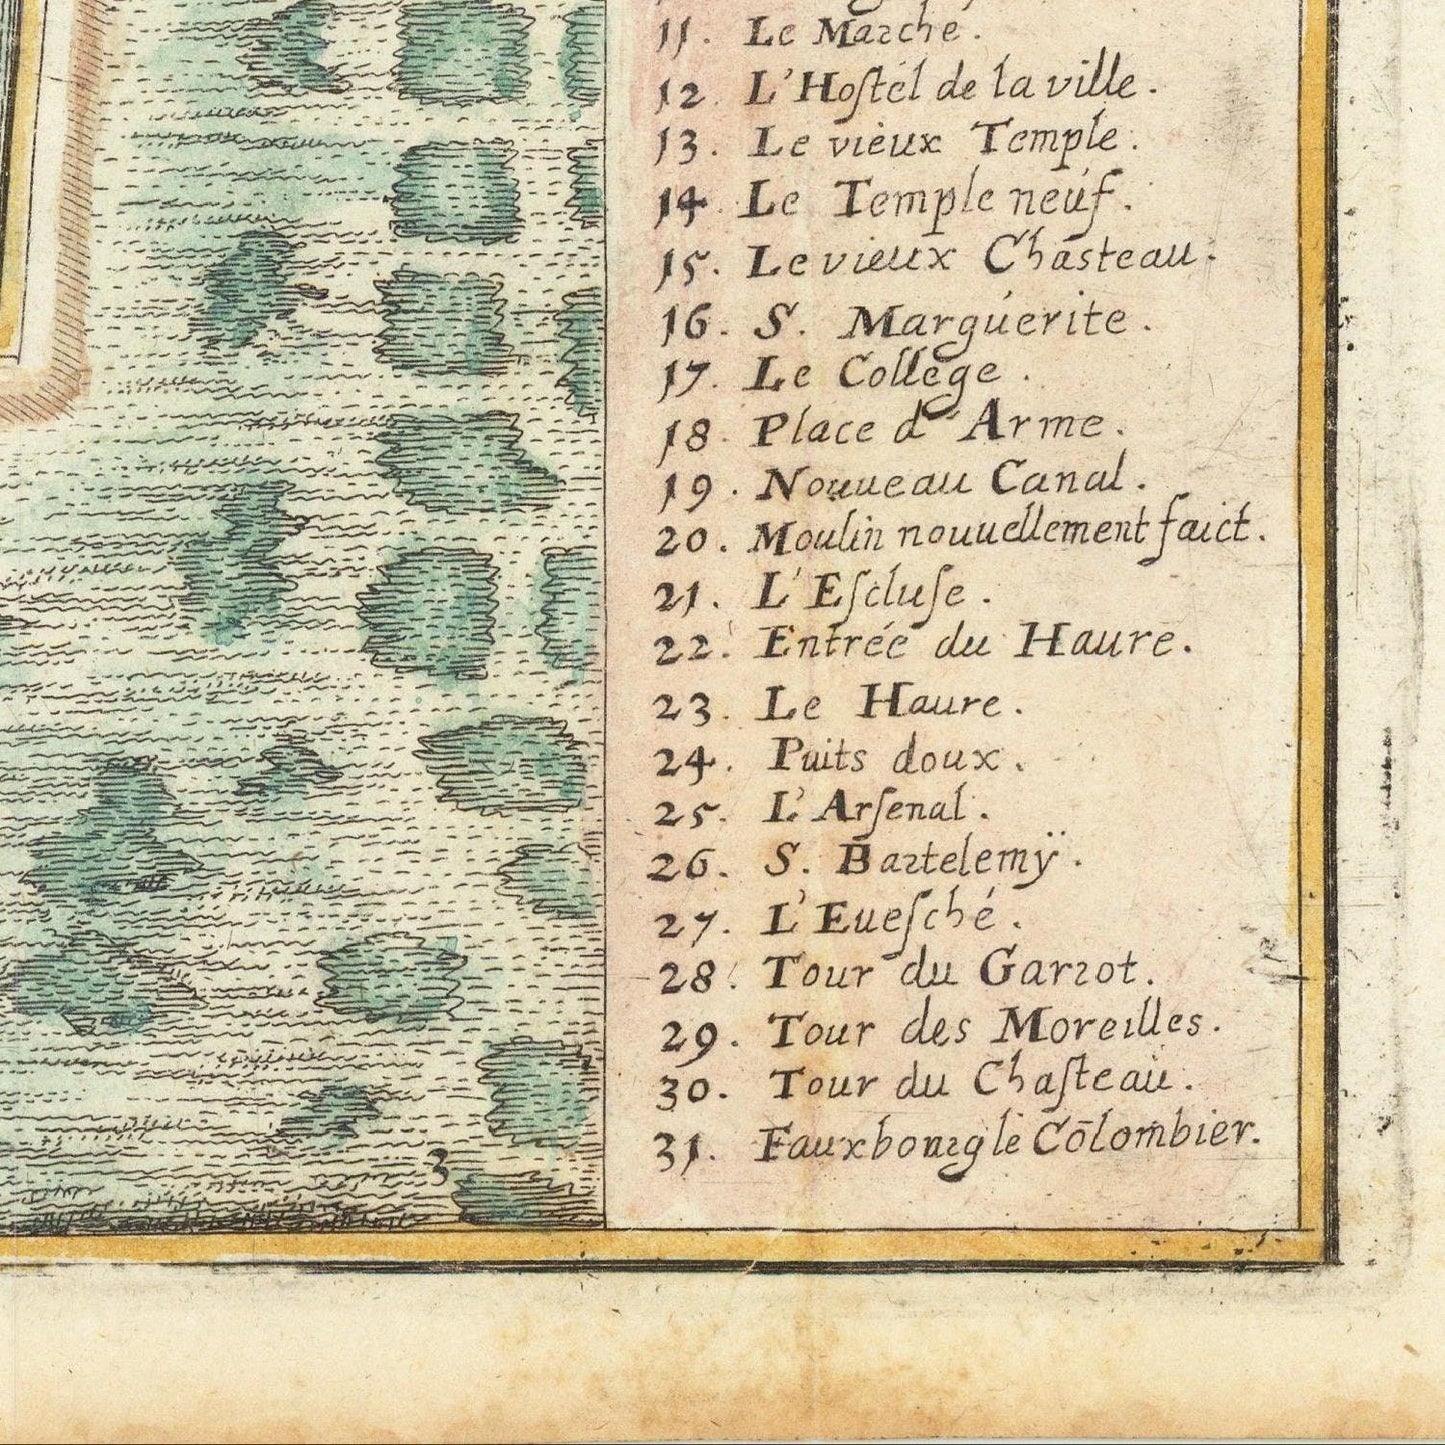 11. Le Marché.
12. L'Hoſtel de la ville.
13. Le vieux Temple.
14. Le Temple neuf.
15. Le vieux Chasteau.
16. S. Marguerite.
17. Le College.
18. Place d'Arme.
19. Nouueau Canal.
20. Moulin nouuellement faict.
21. L'Eſcluſe.
22. Entrée du Haure.
23. Le Haure.
24. Puits doux.
25. L'Arſenal.
26. S. Bartelemÿ.
27. L'Eueſché.
28. Tour du Garrot.
29. Tour des Moreilles.
30. Tour du Chaſteau.
31. Fauxbourg le Colombier.
3